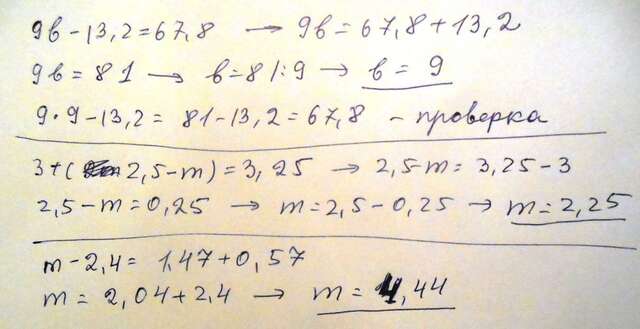 9в – 13,2 = 67,8 → 9в = 67,8 + 13,2
9в = 81 → в = 81:9 → в = 9
9 · 9 – 13,2 = 81 – 13,2 = 67,8 – проверка
3 + (2,5 – m) = 3,25 → 2,5 – m = 3,25 – 3
2,5 – m = 0,25 → m = 2,5 – 0,25 → m = 2,25
m – 2,4 = 1,47 + 0,57
m = 2,04 + 2,4 → m = 4,44